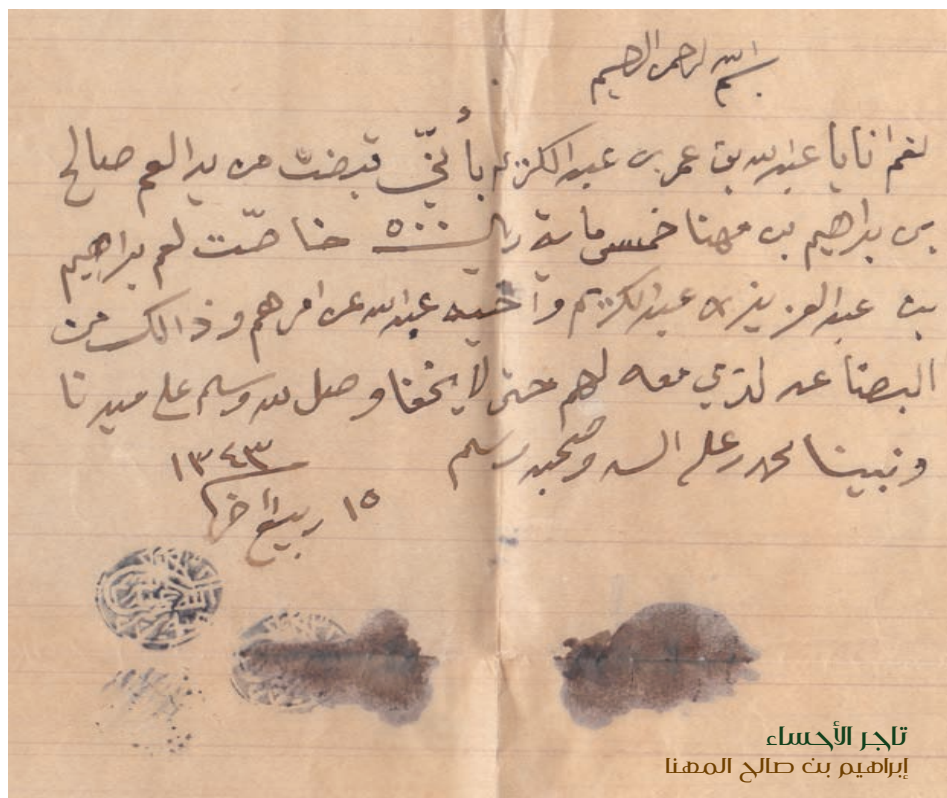 بسم الله الرحمن الرحيم
نعم انا يا عبدالله بن عمر بن عبدالكريم بأنّي قبضت من يد العم صالح
بن براهيم بن مهنا خمس ماية ريال ٥٠٠ خاصّت لعم براهيم
بن عبدالعزيز بن عبدالكريم وأخيه عبدالله عن امرهم وذالك من
البضاعه لذي معه لهم حتى لا يخفا وصل لله وسلم على سيدنا
ونبينا محمد وعلى اله وصحبه وسلم
١٥ ربيع اخر ١٣٤٣
تاجر الأحساء
إبراهيم بن صالح المهنا